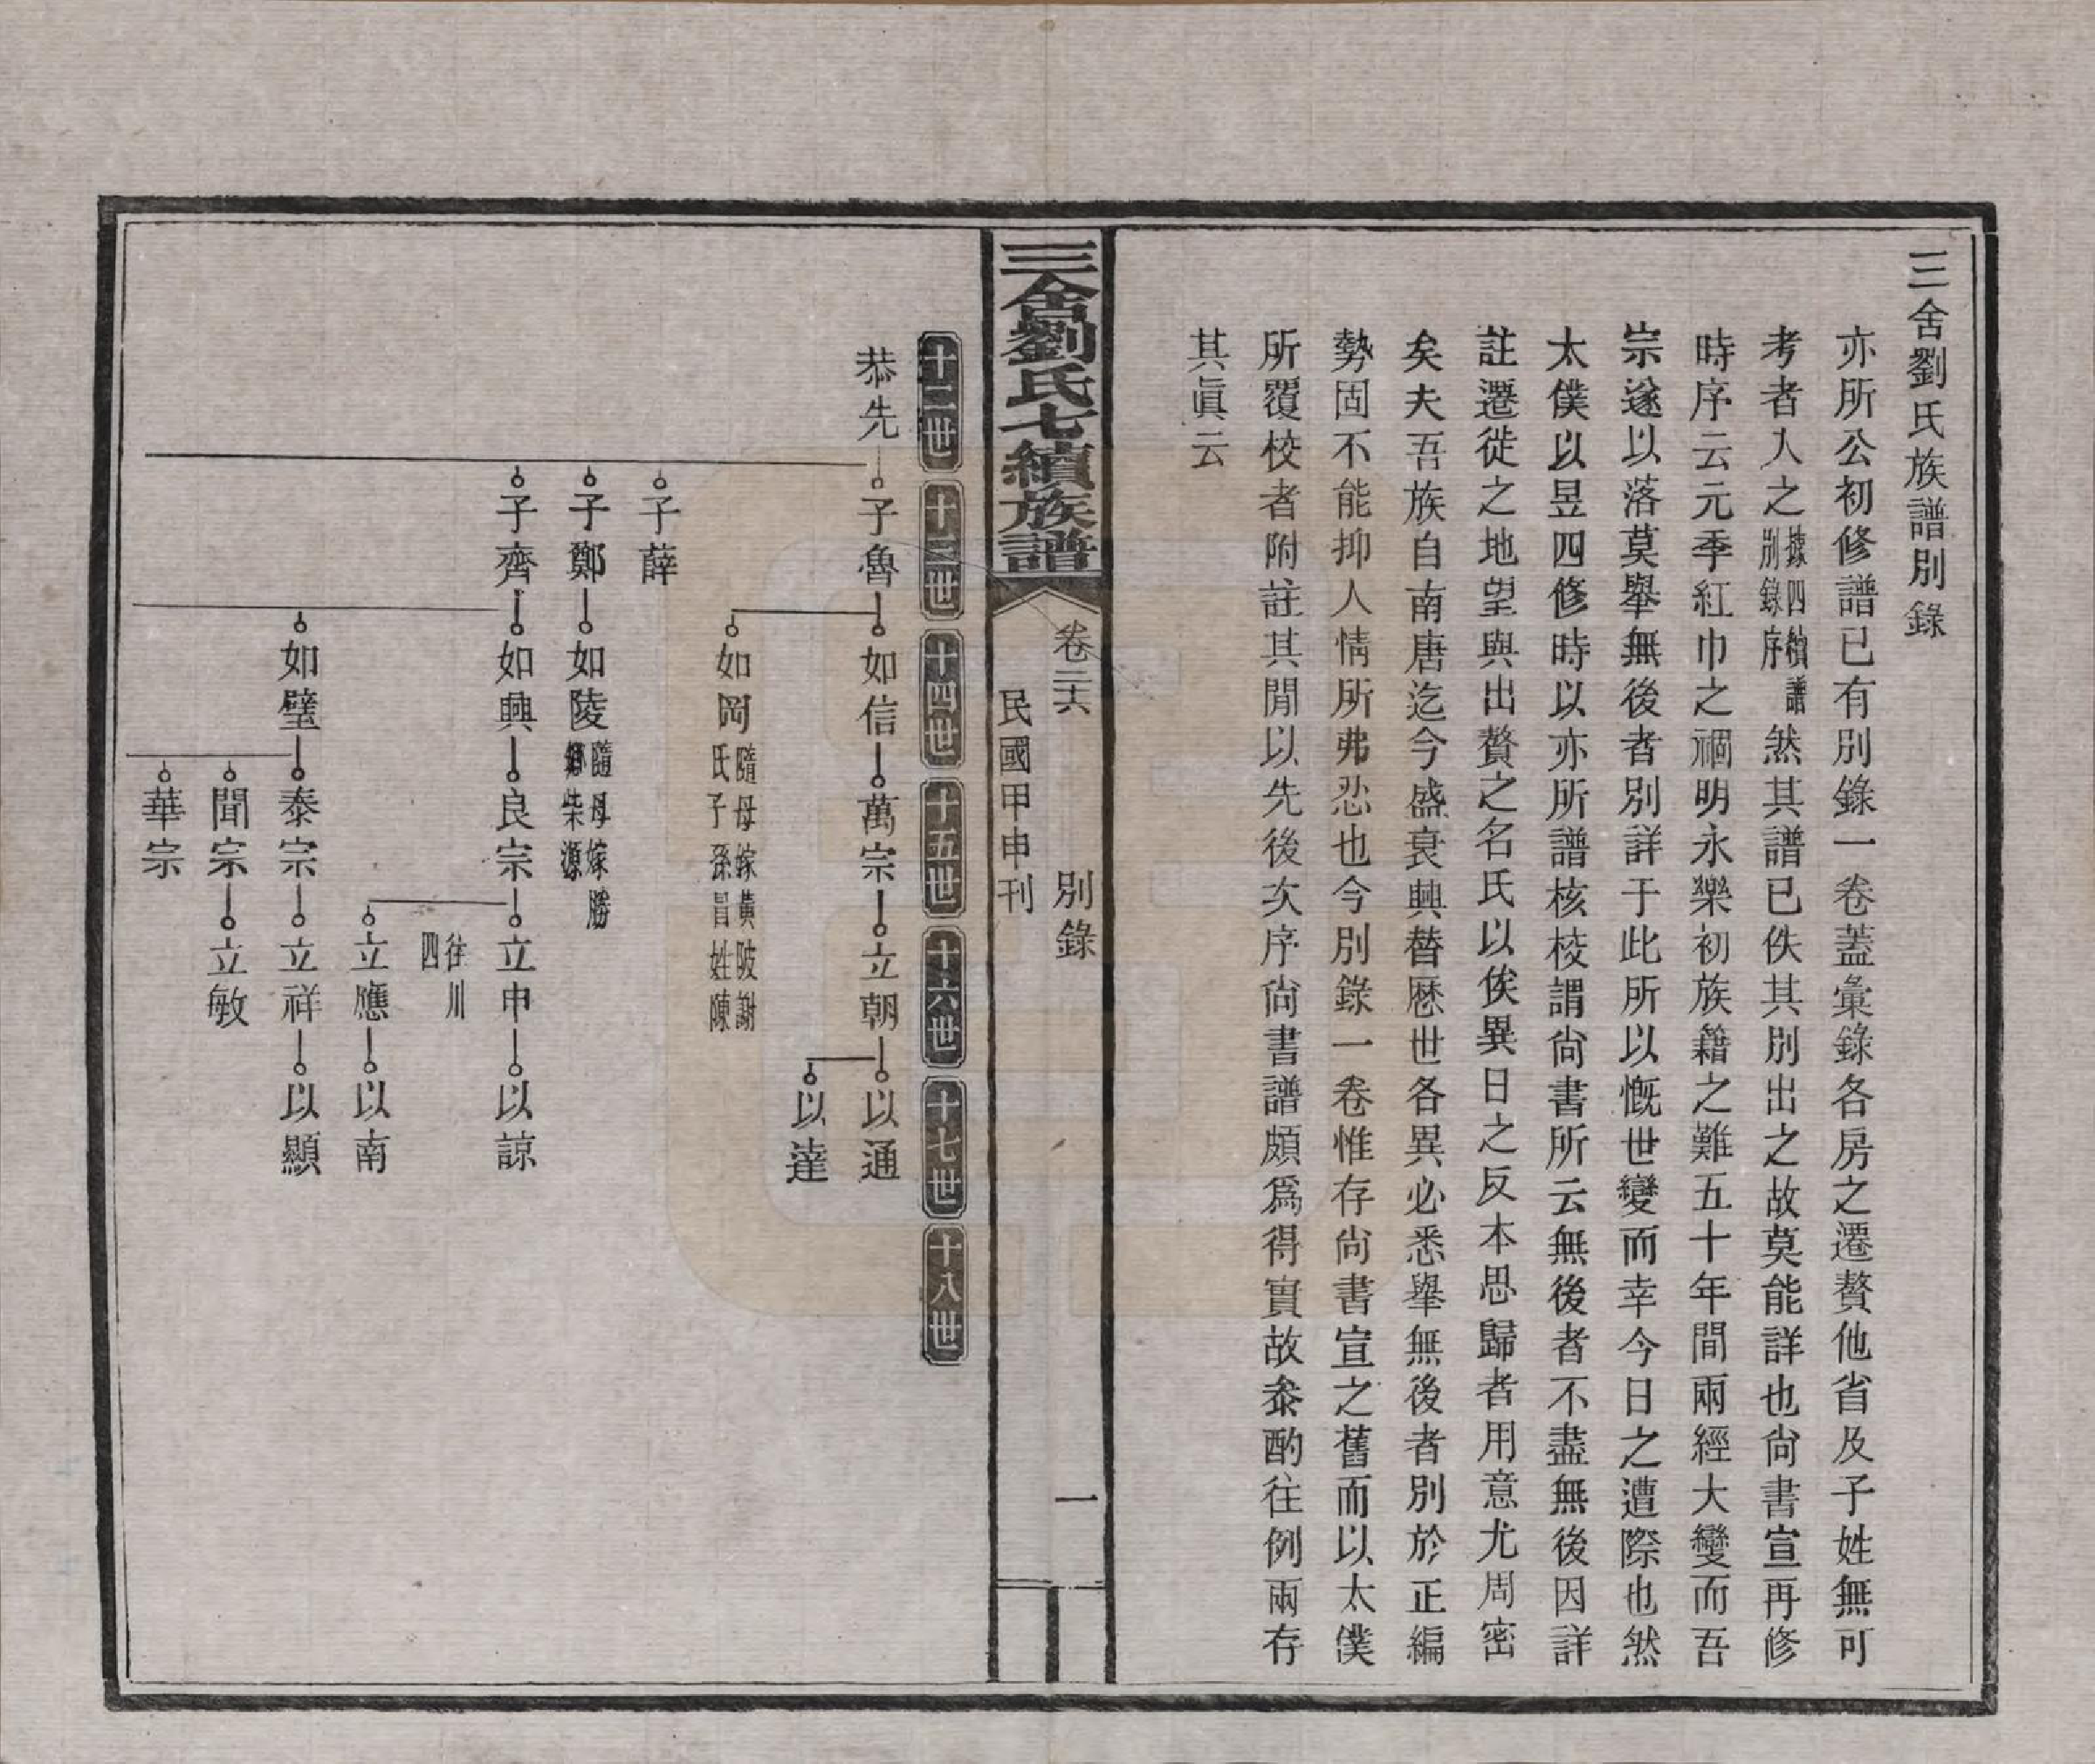 三舍劉氏族譜別錄
亦所公初修譜已有別錄一卷蓋彙錄各房之遷贅他省及子姓無可
考者入之據四續譜別錄序然其譜已佚其別出之故莫能詳也尙書宣再修
時序云元季紅巾之禍明永樂初族籍之難五十年間兩經大變而吾
宗遂以落莫舉無後者別詳于此所以慨世變而幸今日之遭際也然
太僕以昱四修時以亦所譜核校謂尙書所云無後者不盡無後因詳
註遷徙之地望與出贅之名氏以俟異日之反本思歸者用意尤周密
矣夫吾族自南唐迄今盛衰興替歷世各異必悉舉無後者別於正編
勢固不能抑人情所弗忍也今別錄一卷惟存尙書宣之舊而以太僕
所覆校者附註其間以先後次序尙書譜頗爲得實故叅酌往例兩存
其眞云
三舍劉氏七續族譜
卷二六
別錄
一
民國甲申刊
十二世
十三世
十四世
十五世
十六世
十七世
十八世
恭先
子魯
如信
萬宗
立朝
以通
以達
如岡
隨母嫁黃陂謝
氏子孫冒姓陳
子薛
子鄭
如陵
隨母嫁勝
鄉柴源
子齊
如興
良宗
立申
以諒
往川
四
立應
以南
如璧
泰宗
立祥
以顯
聞宗
立敏
華宗